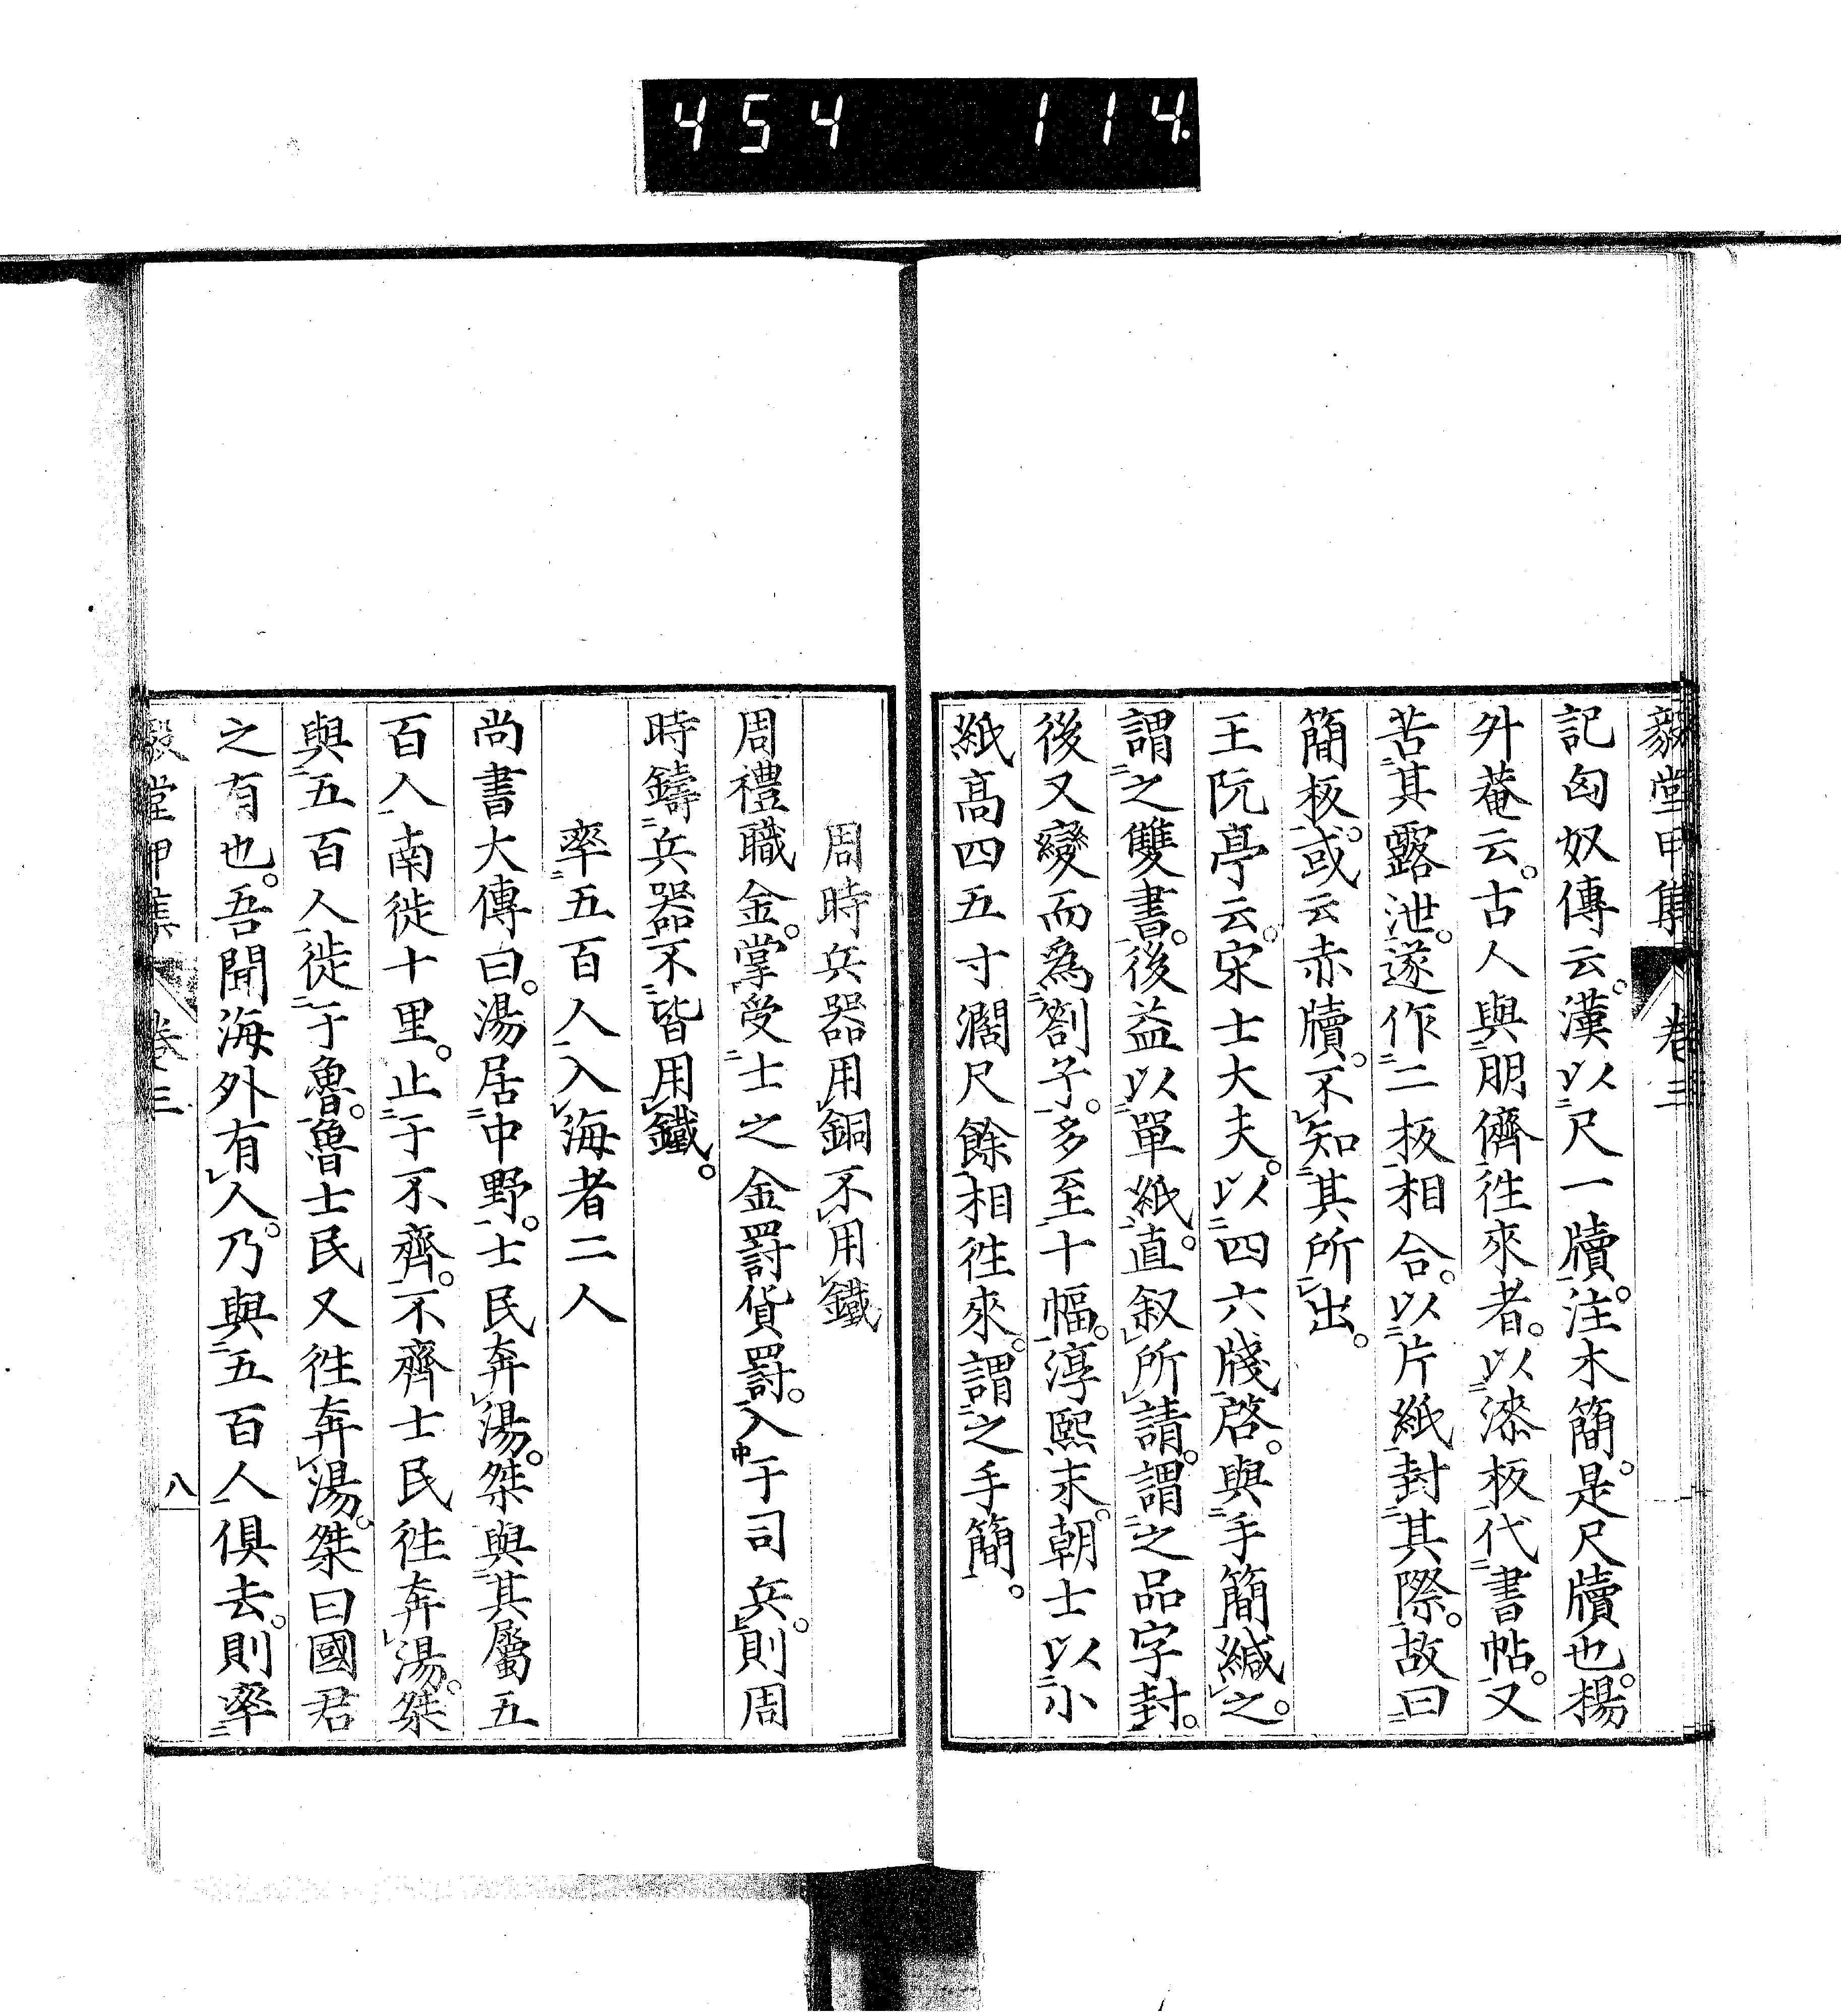 454 114.
毅堂甲集 卷三
記匈奴傳云。漢以尺一牘。注木簡。是尺牘也。揚
升菴云。古人與朋儕徃來者。以漆板代書帖。又
苦其露泄。遂作二板相合。以片紙封其際。故曰
簡板。或云赤牘。不知其所出。
王阮亭云。宋士大夫。以四六牋啓。與手簡緘之。
謂之雙書。後益以單紙。直叙所請。謂之品字封。
後又變而爲劄子。多至十幅。淳熙末。朝士以小
紙高四五寸濶尺餘相徃來。謂之手簡。
周時兵器用銅不用鐵
周禮職金。掌受士之金罰貨罰。入于司兵。則周
時鑄兵器不皆用鐵。
率五百人入海者二人
尚書大傳曰。湯居中野。士民奔湯。桀與其屬五
百人南徙十里。止于不齊。不齊士民徃奔湯。桀
與五百人徙于魯。魯士民又徃奔湯。桀曰國君
之有也。吾聞海外有人。乃與五百人俱去。則率
毅堂甲集 卷三 八